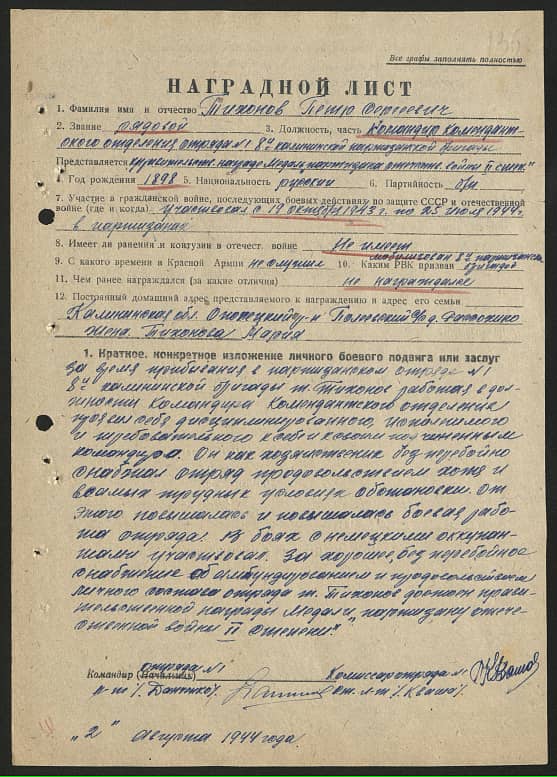 Все графы заполнять полностью
НАГРАДНОЙ ЛИСТ
1. Фамилия имя и отчество Тихонов Петр Сергеевич
2. Звание рядовой 3. Должность, часть Командир Комендант-
ского отделения отряда №1 8ой калининской партизанской бригады
Представляется к правительств. награде Медаль партизана отечествен. войны II степ."
4. Год рождения 1898 5. Национальность русский 6. Партийность б/п
7. Участие в гражданской войне, последующих боевых действиях по защите СССР и отечественной
войне (где и когда) участвовал с 19 октября 1943 г. по 25 июля 1944 г.
в партизанах
8. Имеет ли ранения и контузии в отечест. войне Не имеет
мобилизован 8ой партизанск.
9. С какого времени в Красной Армии не служил 10. Каким РВК призван бригадой
11. Чем ранее награждался (за какие отличия) не награждался
12. Постоянный домашний адрес представляемого к награждению и адрес его семьи
Калининская обл. Опочецкий р-н д.
жена Тихонова Мария
1. Краткое, конкретное изложение личного боевого подвига или заслуг
За время пребывания в партизанском отряде №1
8ой калининской бригады т. Тихонов работая в дол-
жности Командира Комендантского отделения
проявил себя дисциплинированного, исполнимого
и требовательного к себе и к своим подчиненным
командира. Он как хозяйственник без перебойно
снабжал отряд продовольствием хотя и
в самых трудных условиях обстановки. От
этого повышалась и повышалась боевая рабо-
та отряда. В боях с немецкими оккупан-
тами участвовал. За хорошее, без перебойное
снабжение обмундированием и продовольствием
личного состава отряда т. Тихонов достоин прави-
тельственной награды Медали „партизану отече-
ственной войны II степени".
отряда №1
Командир (Начальник) Комиссар отряда №1
/Даненко/ ст. л-т /Квашов/
„2" августа 1944 года.